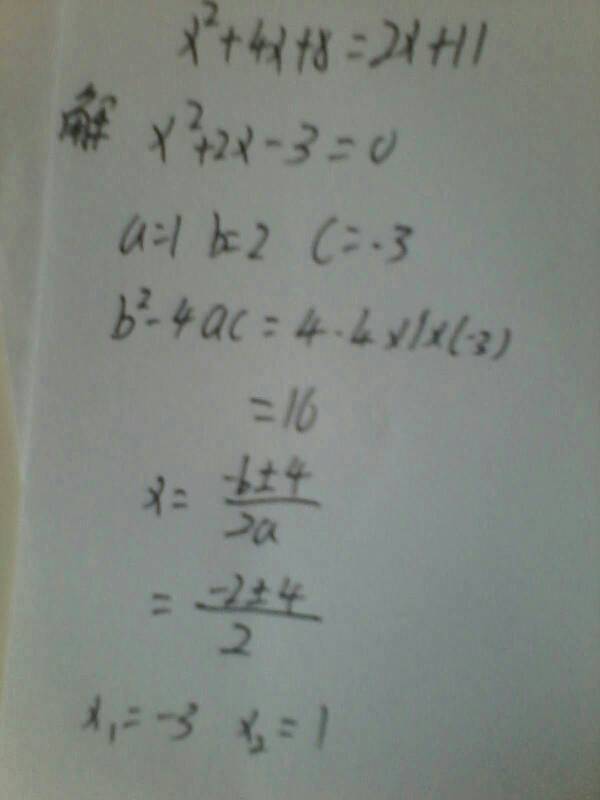 x²+4x+8=2x+11
解 x²+2x-3=0
a=1 b=2 c=-3
b²-4ac=4-4×1×(-3)
=16
x=\frac{-b±4}{2a}
=\frac{-2±4}{2}
x₁=-3 x₂=1